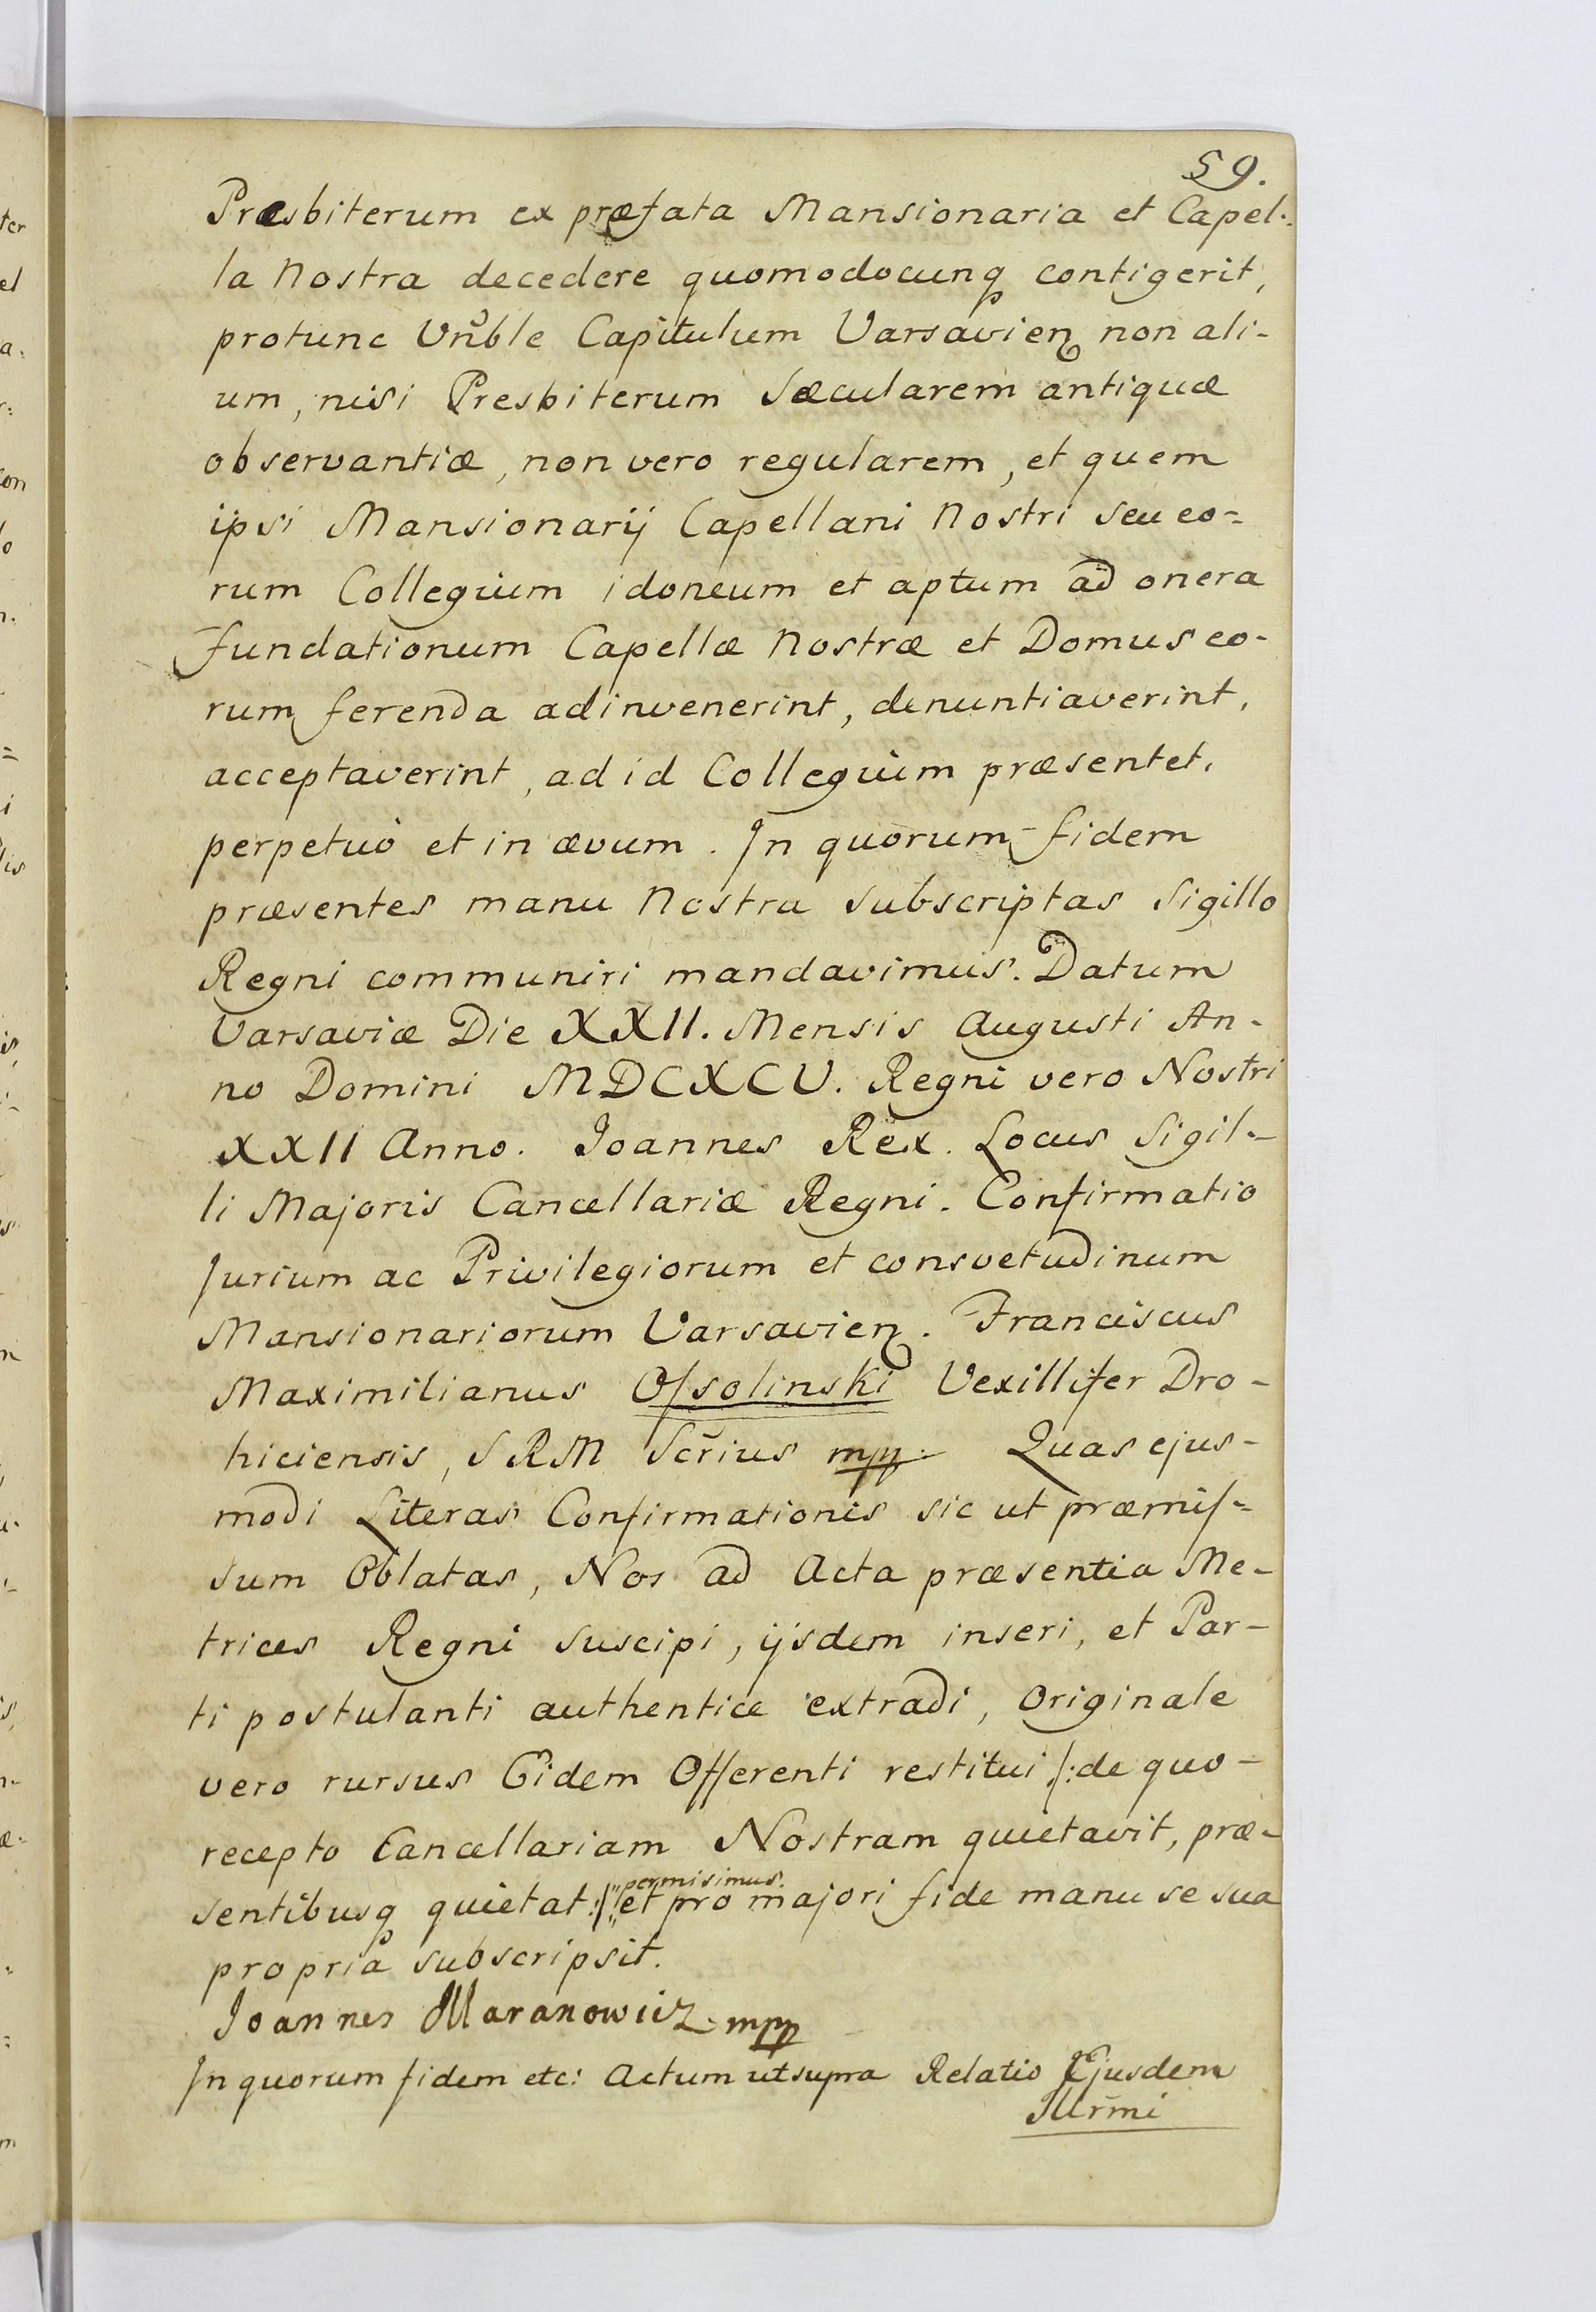 59.
Præsbiterum ex præfata Mansionaria et Capel-
la Nostra decedere quomodocunq contigerit,
protunc Vnble Capitulum Varsavien non ali-
um, nisi Presbiterum Sæcularem antiquæ
observantiæ, non vero regularem, et quem
ipsi Mansionarij Capellani Nostri seu eo-
rum Collegium idoneum et aptum ad onera
fundationum Capellæ Nostræ et Domus eo-
rum ferenda adinvenerint, denuntiaverint,
acceptaverint, ad id Collegium præsentet,
perpetuò et in ævum. In quorum fidem
præsentes manu Nostra subscriptas Sigillo
Regni communiri mandavimus. Datum
Varsaviæ Die XXII. Mensis Augusti An-
no Domini MDCXCV. Regni vero Nostri
XXII Anno. Joannes Rex. Locus Sigil-
li Majoris Cancellariæ Regni. Confirmatio
Jurium ac Privilegiorum et consvetudinum
Mansionariorum Varsavien. Franciscus
Maximilianus Ossolinski Vexillifer Dro-
hiciensis, SRM Scrius mpp. Quas ejus-
modi Literas Confirmationis sic ut præmis-
sum Oblatas, Nos ad Acta præsentia Me-
trices Regni suscipi, ijsdem inseri, et Par-
ti postulanti authentice extradi, Originale
vero rursus Eidem Offerenti restitui /: de quo-
recepto Cancellariam Nostram quietavit, præ-
permisimus.
sentibusq quietat :/ et pro majori fide manu se sua
propria subscripsit.
Joannes Maranowicz mpp
In quorum fidem etc: Actum ut supra Relatio Ejusdem
Illrmi